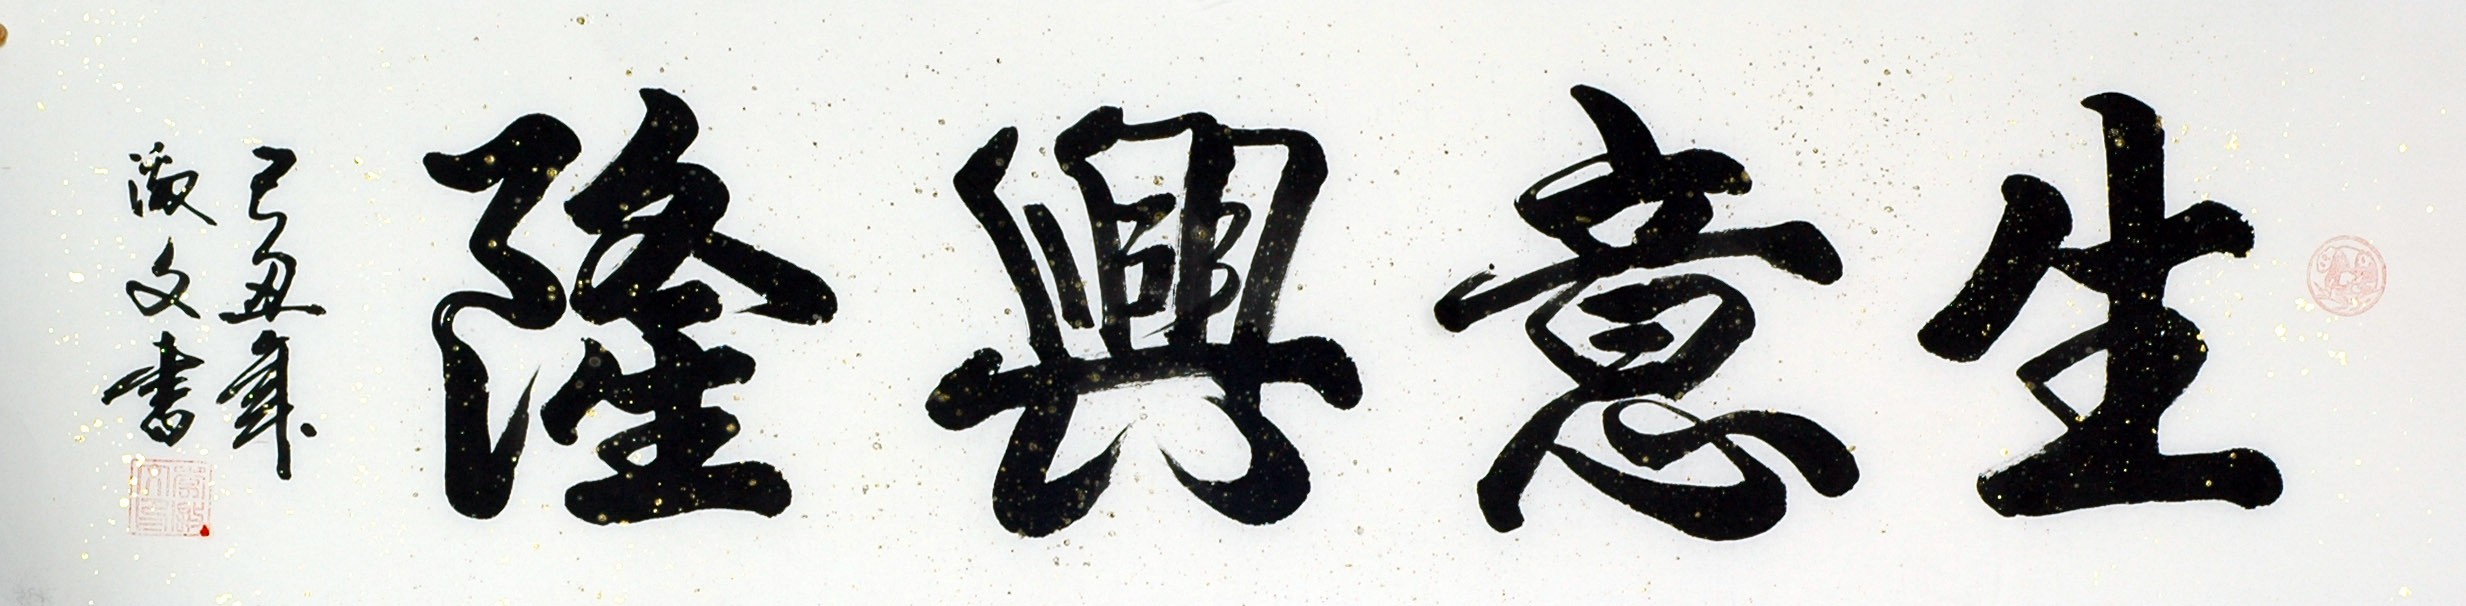 生意興隆
己丑年
文書